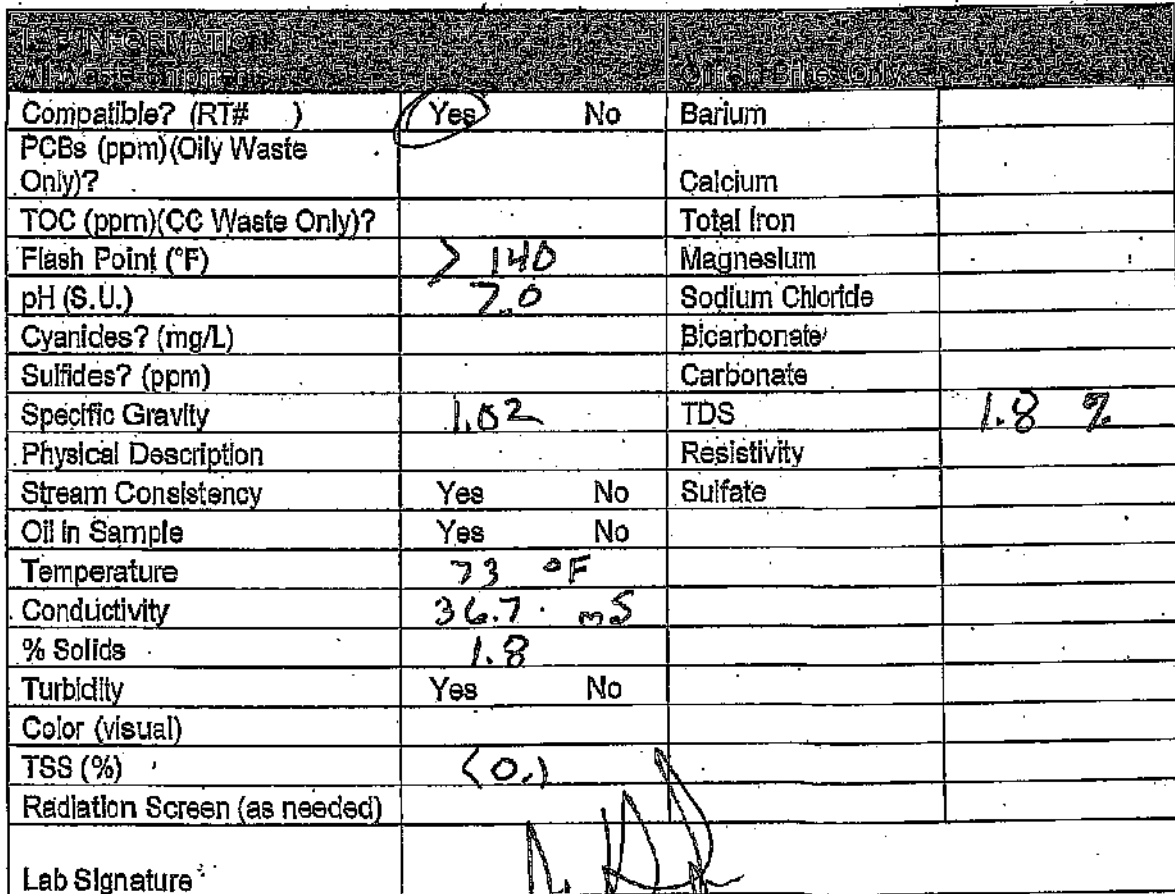 LAB INFORMATION
All Waste Shipments Oilfield Brines Only
Compatible? (RT# ) Yes No Barium
PCBs (ppm)(Oily Waste
Only)? Calcium
TOC (ppm)(CC Waste Only)? Total Iron
Flash Point (°F) > 140 Magnesium
pH (S.U.) 7.0 Sodium Chloride
Cyanides? (mg/L) Bicarbonate
Sulfides? (ppm) Carbonate
Specific Gravity 1.02 TDS 1.8 %
Physical Description Resistivity
Stream Consistency Yes No Sulfate
Oil in Sample Yes No
Temperature 73 °F
Conductivity 36.7 mS
% Solids 1.8
Turbidity Yes No
Color (visual)
TSS (%) <0.1
Radiation Screen (as needed)
Lab Signature